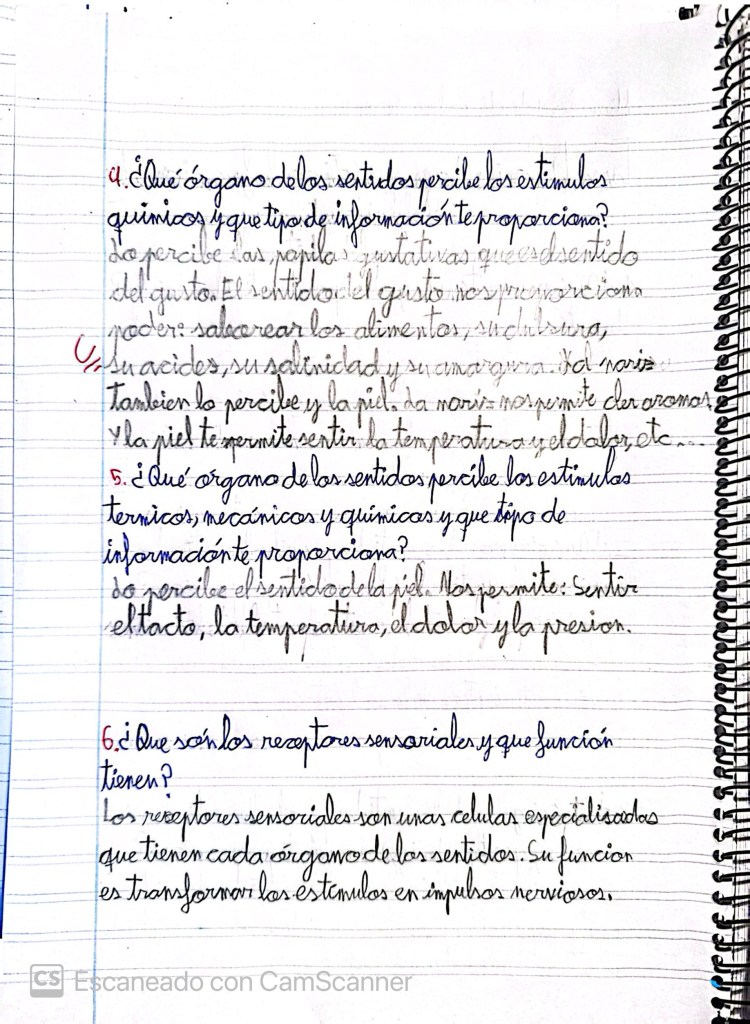 4. ¿Qué órgano de los sentidos percibe los estimulos
quimicos y que tipo de información te proporciona?
Lo percibe las papilas gustativas que es el sentido
del gusto. El sentido del gusto nos proporciona
poder: saborear los alimentos, su dulsura,
su acides, su salinidad y su amargura. Y el nariz
tambien lo percibe y la piel. La nariz nos permite oler aromas.
Y la piel te permite sentir la temperatura y el dolor, etc...
5. ¿Qué organo de los sentidos percibe los estimulos
termicos, mecánicos y químicos y que tipo de
información te proporciona?
Lo percibe el sentido de la piel. Nos permite: Sentir
el tacto, la temperatura, el dolor y la presion.
6. ¿Que són los receptores sensoriales y que función
tienen?
Los receptores sensoriales son unas celulas especialisadas
que tienen cada órgano de los sentidos. Su funcion
es transformar los estimulos en impulsos nerviosos.
CS Escaneado con CamScanner